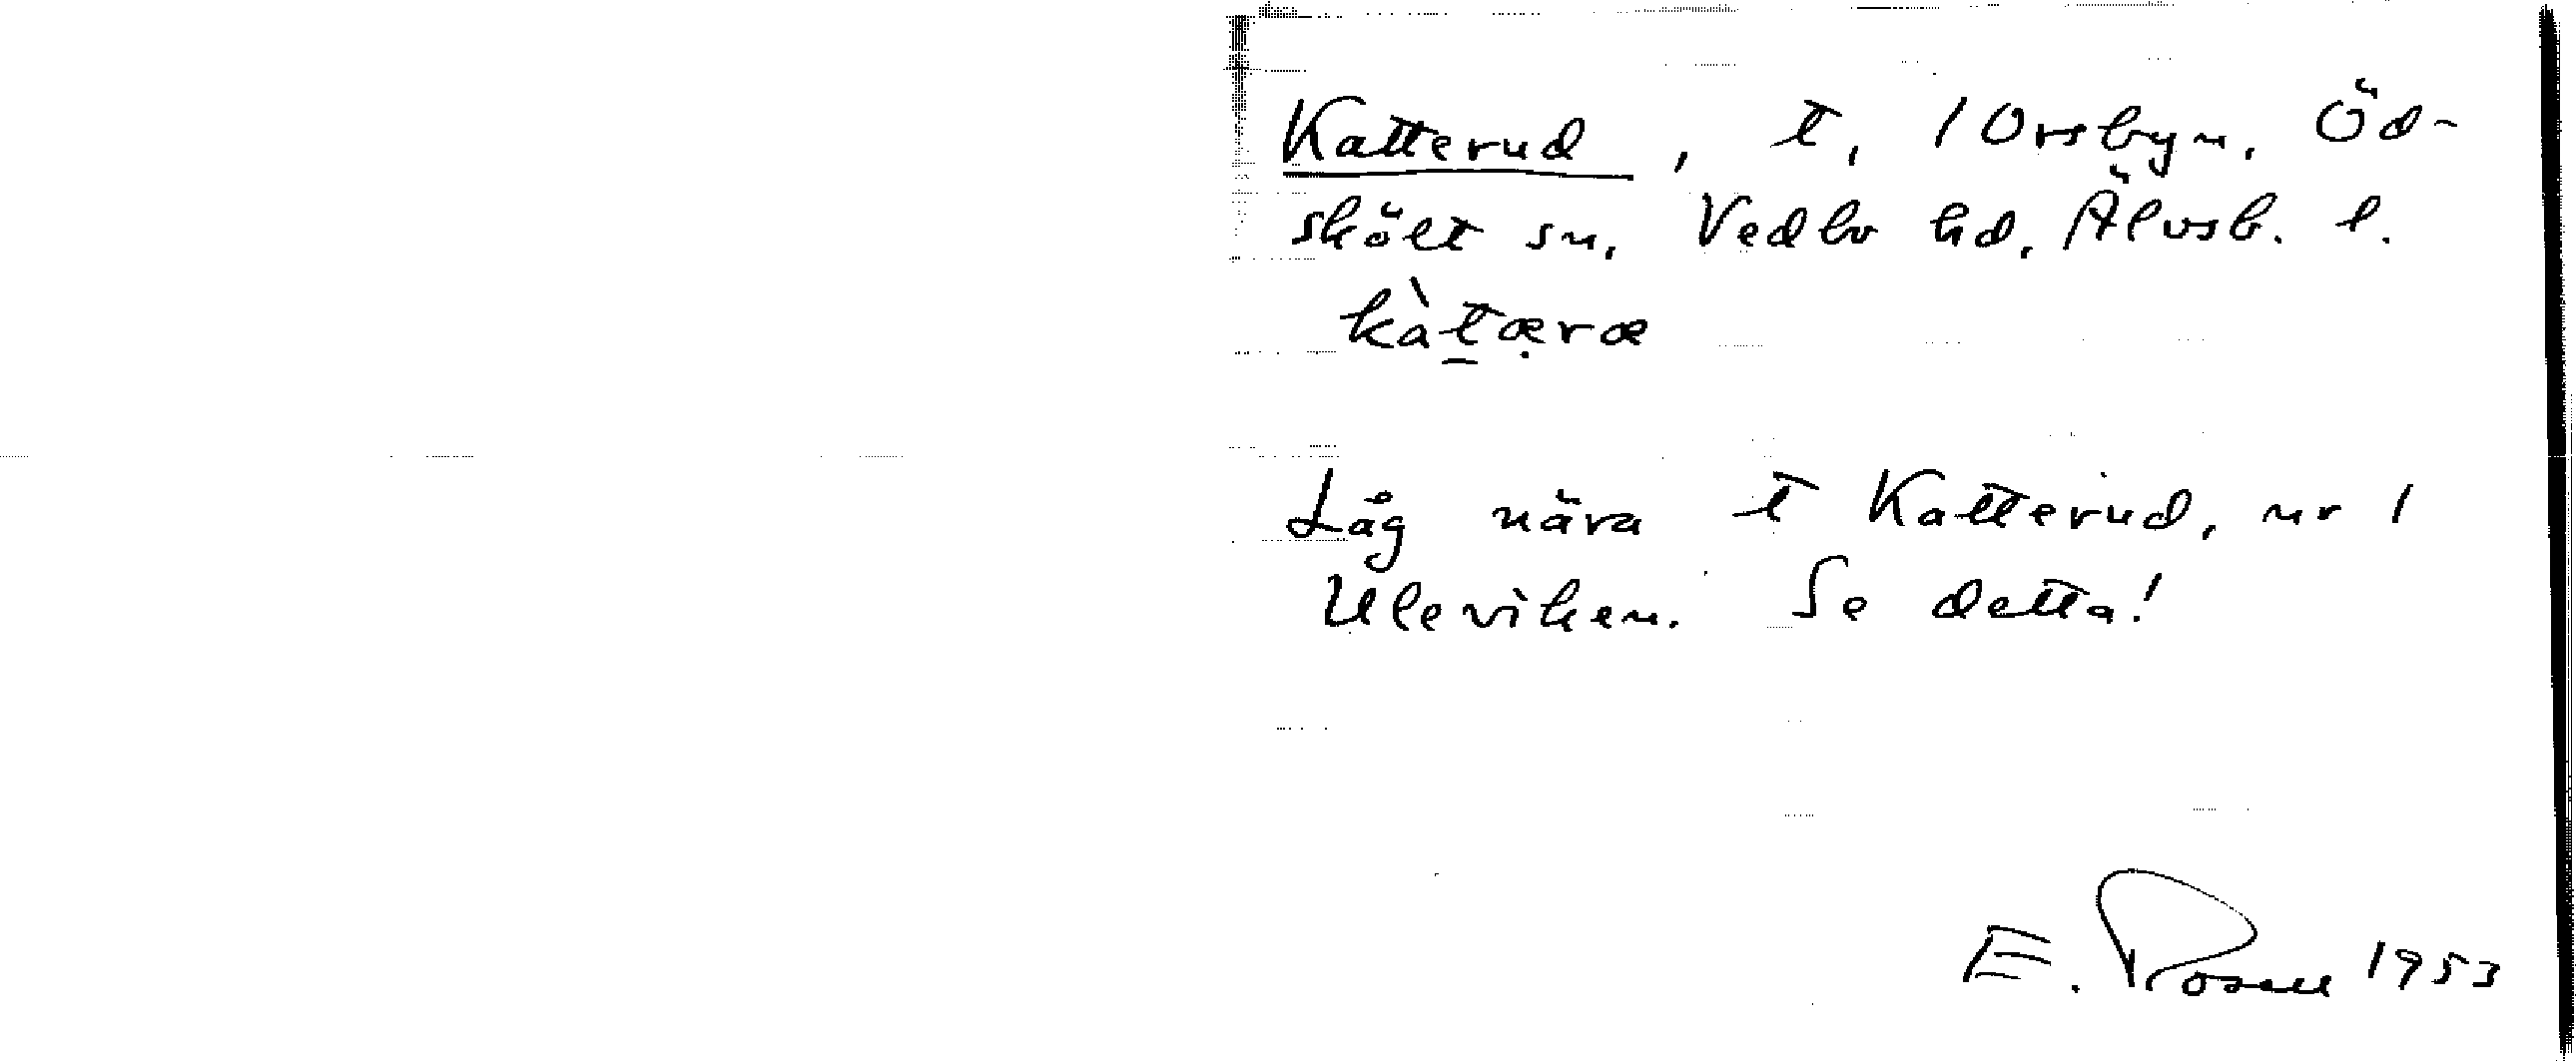 Katterud, t, 1 Orsbyn. Öd-
skölt sn, Vedbo hd, Älvsb. l.
kàtæræ
Låg nära t Katterud, nr 1
Uleviken. Se detta!
E. Rosell 1953